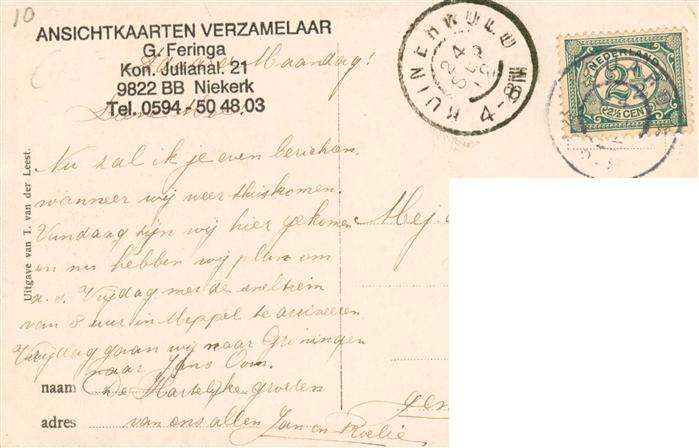 10
ANSICHTKAARTEN VERZAMELAAR
G. Feringa
Kon. Julianal. 21
9822 BB Niekerk
Tel. 0594 - 50 48,03
Maandag!
Nu zal ik je even berichten
wanneer wij weer thuiskomen.
Vandaag zijn wij hier gekomen
en nu hebben wij plan om
a.s. Vrijdag met de sneltrein
van 8 uur in Meppel te arriveeren
Vrijdag gaan wij naar Groningen
naar Jans Oom.
naam De Hartelijke groeten
adres van ons allen Jan en Roelie
Uitgave van T. van der Leest.
RUINERWOLD
4-8
NEDERLAND
2½
2½ CENT
Mej.